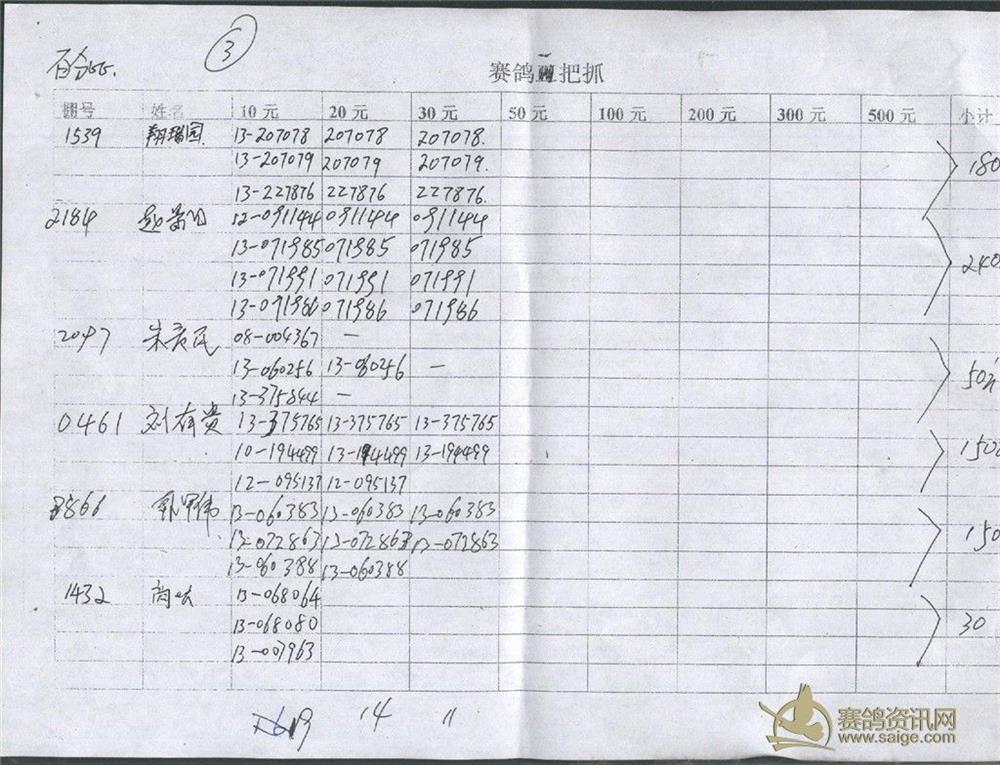 ③
赛鸽 把抓
棚号 姓名 10 元 20 元 30 元 50 元 100 元 200 元 300 元 500 元 小计
1539 翔瑞园 13-207078 207078 207078.
13-207079 207079 207079. 180
13-227876 227876 227876.
2184 12-091144 091144 091144
13-071985 071985 071985
13-071991 071991 071991 240
13-071986 071986 071986
2097 08-004367 —
13-060256 13-060256 — 50
13-375844 —
0461 刘有贵 13-375765 13-375765 13-375765
10-194499 13-194499 13-194499 150
12-095137 12-095137
866 13-060383 13-060383 13-060383
13-072863 13-072863 13-072863 150
13-060388 13-060388
1432 13-068064
13-068080 30
13-007963
19 14 11
赛鸽资讯网
www.saige.com